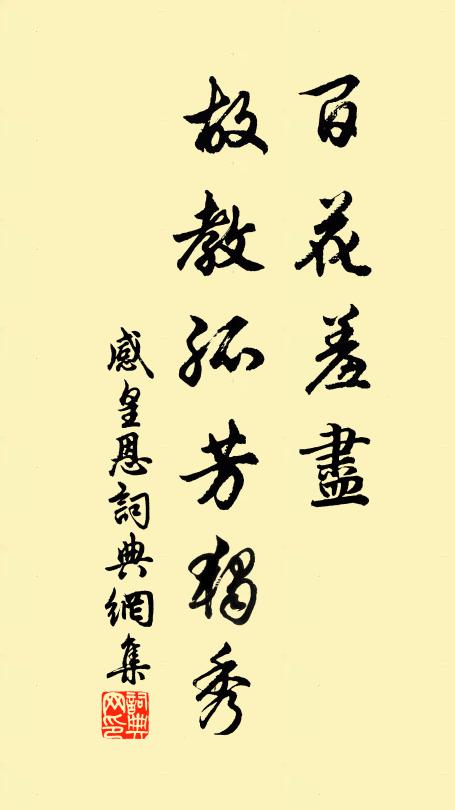 百花羞盡
故教孤芳獨秀
感皇恩詞典網集
詞典網印